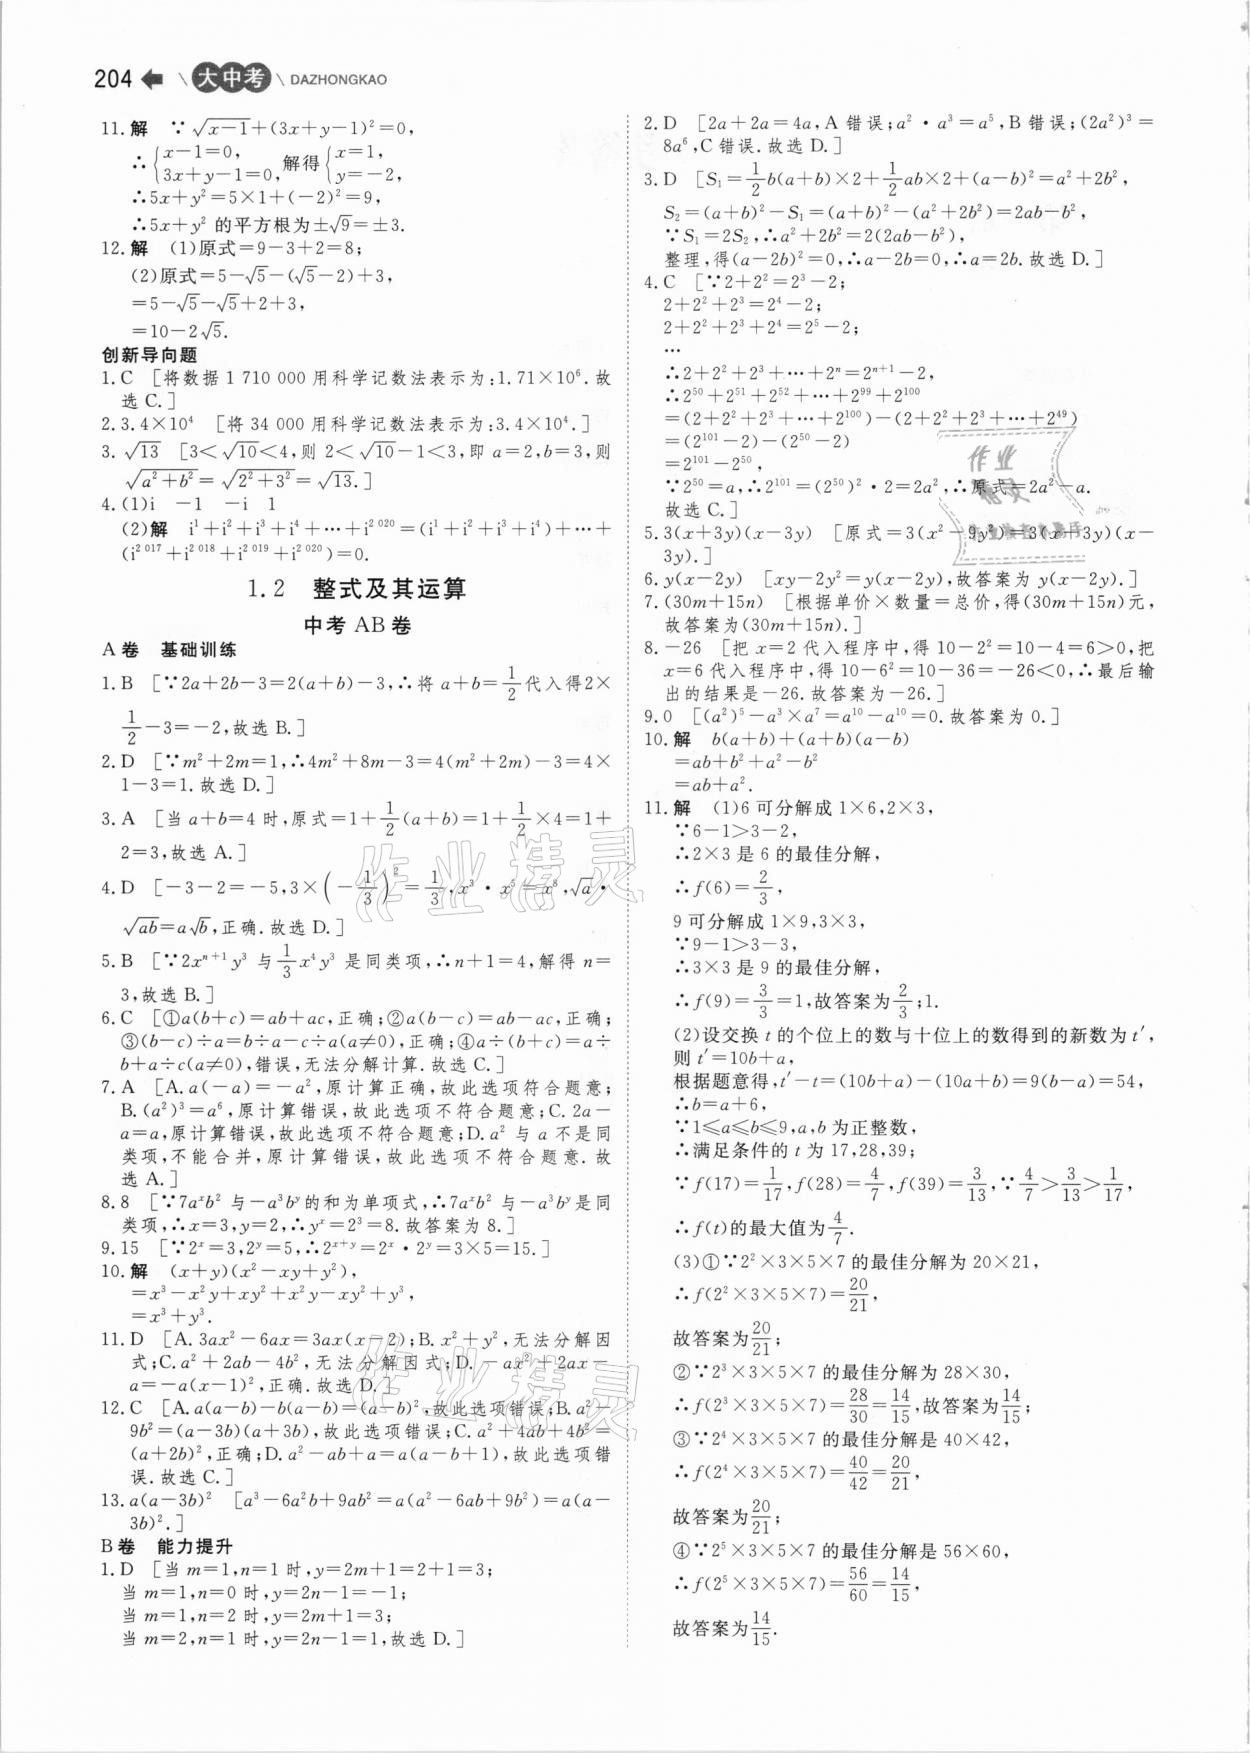 204 大中考 DAZHONGKAO
11.解 ∵√(x-1)+(3x+y-1)²=0,
∴{x-1=0, 3x+y-1=0, 解得{x=1, y=-2,
∴5x+y²=5×1+(-2)²=9,
∴5x+y² 的平方根为±√9=±3.
12.解 (1)原式=9-3+2=8;
(2)原式=5-√5-(√5-2)+3,
=5-√5-√5+2+3,
=10-2√5.
创新导向题
1.C [将数据 1 710 000 用科学记数法表示为:1.71×10⁶.故
选 C.]
2.3.4×10⁴ [将 34 000 用科学记数法表示为:3.4×10⁴.]
3.√13 [3<√10<4,则 2<√10-1<3,即 a=2,b=3,则
√(a²+b²)=√(2²+3²)=√13.]
4.(1)i -1 -i 1
(2)解 i¹+i²+i³+i⁴+…+i²⁰²⁰=(i¹+i²+i³+i⁴)+…+
(i²⁰¹⁷+i²⁰¹⁸+i²⁰¹⁹+i²⁰²⁰)=0.
1.2 整式及其运算
中考 AB 卷
A 卷 基础训练
1.B [∵2a+2b-3=2(a+b)-3,∴将 a+b=1/2代入得2×
1/2-3=-2,故选 B.]
2.D [∵m²+2m=1,∴4m²+8m-3=4(m²+2m)-3=4×
1-3=1.故选 D.]
3.A [当 a+b=4 时,原式=1+1/2(a+b)=1+1/2×4=1+
2=3,故选 A.]
4.D [-3-2=-5,3×(-1/3)²=1/3,x³·x⁵=x⁸,√a·
√ab=a√b,正确.故选 D.]
5.B [∵2xⁿ⁺¹y³ 与1/3x⁴y³ 是同类项,∴n+1=4,解得 n=
3,故选 B.]
6.C [①a(b+c)=ab+ac,正确;②a(b-c)=ab-ac,正确;
③(b-c)÷a=b÷a-c÷a(a≠0),正确;④a÷(b+c)=a÷
b+a÷c(a≠0),错误,无法分解计算.故选 C.]
7.A [A.a(-a)=-a²,原计算正确,故此选项符合题意;
B.(a²)³=a⁶,原计算错误,故此选项不符合题意;C.2a-
a=a,原计算错误,故此选项不符合题意;D.a² 与 a 不是同
类项,不能合并,原计算错误,故此选项不符合题意.故
选 A.]
8.8 [∵7aˣb² 与-a³bʸ的和为单项式,∴7aˣb² 与-a³bʸ是同
类项,∴x=3,y=2,∴yˣ=2³=8.故答案为 8.]
9.15 [∵2ˣ=3,2ʸ=5,∴2ˣ⁺ʸ=2ˣ·2ʸ=3×5=15.]
10.解 (x+y)(x²-xy+y²),
=x³-x²y+xy²+x²y-xy²+y³,
=x³+y³.
11.D [A.3ax²-6ax=3ax(x-2);B.x²+y²,无法分解因
式;C.a²+2ab-4b²,无法分解因式;D.-ax²+2ax-
a=-a(x-1)²,正确.故选 D.]
12.C [A.a(a-b)-b(a-b)=(a-b)²,故此选项错误;B.a²-
9b²=(a-3b)(a+3b),故此选项错误;C.a²+4ab+4b²=
(a+2b)²,正确;D.a²-ab+a=a(a-b+1),故此选项错
误.故选 C.]
13.a(a-3b)² [a³-6a²b+9ab²=a(a²-6ab+9b²)=a(a-
3b)².]
B 卷 能力提升
1.D [当 m=1,n=1 时,y=2m+1=2+1=3;
当 m=1,n=0 时,y=2n-1=-1;
当 m=1,n=2 时,y=2m+1=3;
当 m=2,n=1 时,y=2n-1=1,故选 D.]
2.D [2a+2a=4a,A 错误;a²·a³=a⁵,B 错误;(2a²)³=
8a⁶,C 错误.故选 D.]
3.D [S₁=1/2b(a+b)×2+1/2ab×2+(a-b)²=a²+2b²,
S₂=(a+b)²-S₁=(a+b)²-(a²+2b²)=2ab-b²,
∵S₁=2S₂,∴a²+2b²=2(2ab-b²),
整理,得(a-2b)²=0,∴a-2b=0,∴a=2b.故选 D.]
4.C [∵2+2²=2³-2;
2+2²+2³=2⁴-2;
2+2²+2³+2⁴=2⁵-2;
…
∴2+2²+2³+…+2ⁿ=2ⁿ⁺¹-2,
∴2⁵⁰+2⁵¹+2⁵²+…+2⁹⁹+2¹⁰⁰
=(2+2²+2³+…+2¹⁰⁰)-(2+2²+2³+…+2⁴⁹)
=(2¹⁰¹-2)-(2⁵⁰-2)
=2¹⁰¹-2⁵⁰,
∵2⁵⁰=a,∴2¹⁰¹=(2⁵⁰)²·2=2a²,∴原式=2a²-a.
故选 C.]
5.3(x+3y)(x-3y) [原式=3(x²-9y²)=3(x+3y)(x-
3y).]
6.y(x-2y) [xy-2y²=y(x-2y),故答案为 y(x-2y).]
7.(30m+15n) [根据单价×数量=总价,得(30m+15n)元,
故答案为(30m+15n).]
8.-26 [把 x=2 代入程序中,得 10-2²=10-4=6>0,把
x=6 代入程序中,得 10-6²=10-36=-26<0,∴最后输
出的结果是-26.故答案为-26.]
9.0 [(a²)⁵-a³×a⁷=a¹⁰-a¹⁰=0.故答案为 0.]
10.解 b(a+b)+(a+b)(a-b)
=ab+b²+a²-b²
=ab+a².
11.解 (1)6 可分解成 1×6,2×3,
∵6-1>3-2,
∴2×3 是 6 的最佳分解,
∴f(6)=2/3,
9 可分解成 1×9,3×3,
∵9-1>3-3,
∴3×3 是 9 的最佳分解,
∴f(9)=3/3=1,故答案为2/3;1.
(2)设交换 t 的个位上的数与十位上的数得到的新数为 t′,
则 t′=10b+a,
根据题意得,t′-t=(10b+a)-(10a+b)=9(b-a)=54,
∴b=a+6,
∵1≤a≤b≤9,a,b 为正整数,
∴满足条件的 t 为 17,28,39;
∵f(17)=1/17,f(28)=4/7,f(39)=3/13,∵4/7>3/13>1/17,
∴f(t)的最大值为4/7.
(3)①∵2²×3×5×7 的最佳分解为 20×21,
∴f(2²×3×5×7)=20/21,
故答案为20/21;
②∵2³×3×5×7 的最佳分解为 28×30,
∴f(2³×3×5×7)=28/30=14/15,故答案为14/15;
③∵2⁴×3×5×7 的最佳分解是 40×42,
∴f(2⁴×3×5×7)=40/42=20/21,
故答案为20/21;
④∵2⁵×3×5×7 的最佳分解是 56×60,
∴f(2⁵×3×5×7)=56/60=14/15,
故答案为14/15.
作业精灵
作业精灵
作业
精灵